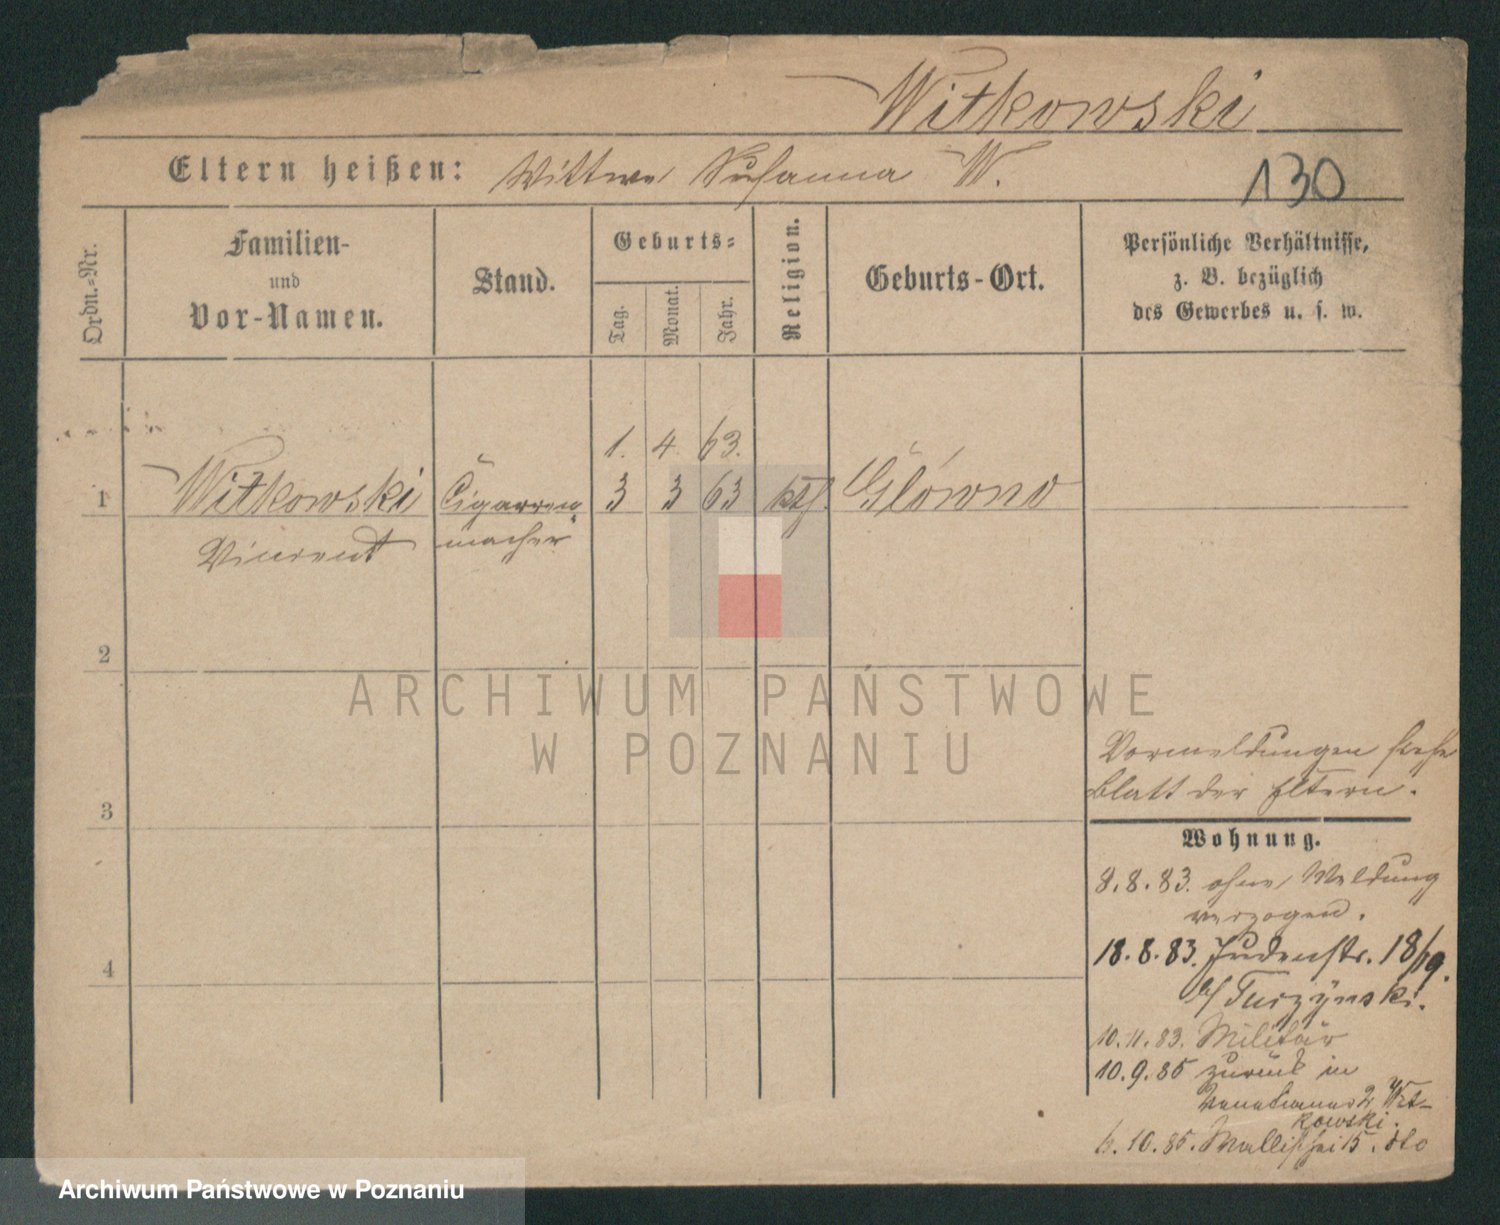 Witkowski
Eltern heißen: Wittwe Susanna W.
130
Ordn.-Nr.
Familien-
und
Vor-Namen.
Stand.
Geburts-
Tag.
Monat.
Jahr.
Religion.
Geburts-Ort.
Persönliche Verhältnisse,
z. B. bezüglich
des Gewerbes u. s. w.
1. 4. 63.
1 Witkowski Cigarren 3 3 63 kth. Główno
Vincent macher
2
ARCHIWUM PAŃSTWOWE
W POZNANIU
Vormeldungen siehe
Blatt der Eltern.
3
Wohnung.
8.8.83. ohne Meldung
verzogen.
18.8.83. Judenstr. 18/19.
b/ Turzynski.
4
10.11.83. Militär
10.9.85 zurück in
2 Wit-
kowski.
6.10.85. Wallischei 15. dto
Archiwum Państwowe w Poznaniu